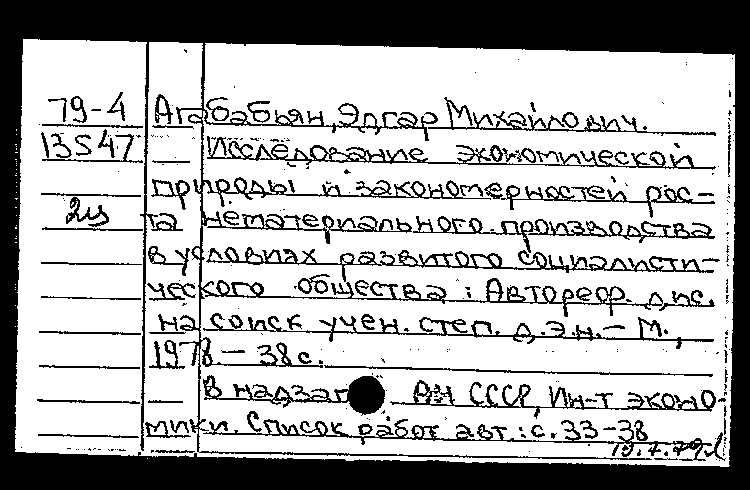 79-4 Агабабьян, Эдгар Михайлович.
13547 Исследование экономической
природы и закономерностей рос-
2из та нематериального производства
в условиях развитого социалисти-
ческого общества : Автореф. дис.
на соиск учен. степ. д.э.н. - М.,
1978 - 38 с.
В надзаг АН СССР, Ин-т эконо-
мики. Список работ авт.: с. 33-38